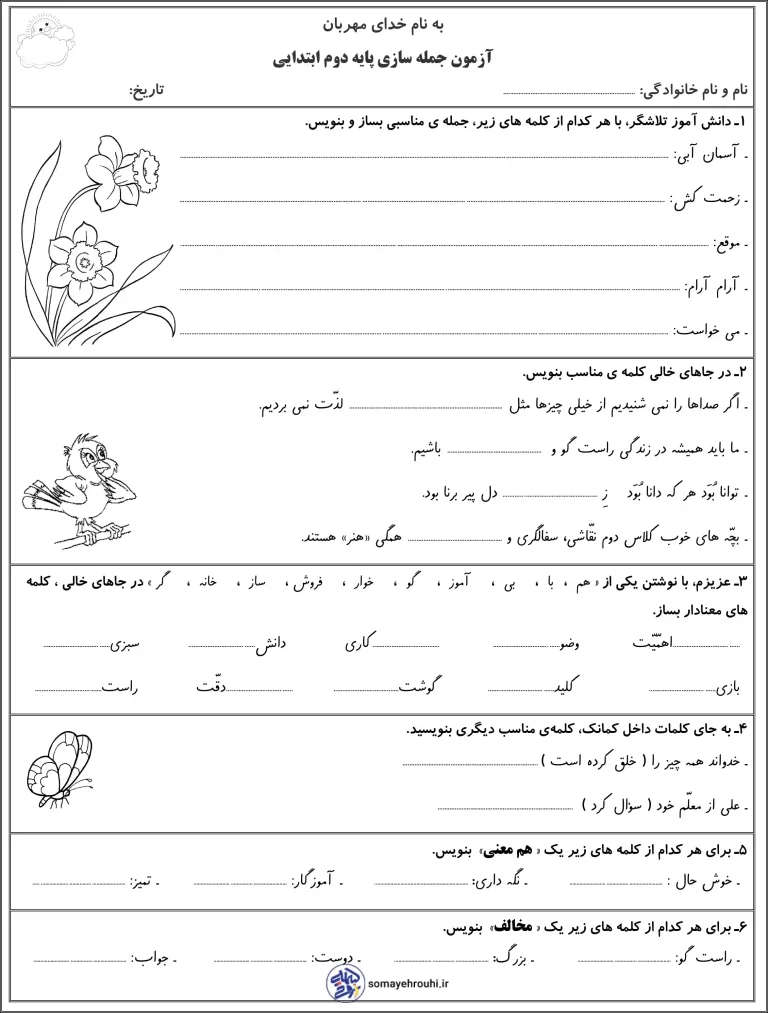 به نام خدای مهربان
آزمون جمله سازی پایه دوم ابتدایی
نام و نام خانوادگی: ........................ تاریخ:
۱ـ دانش آموز تلاشگر، با هر کدام از کلمه های زیر، جمله ی مناسبی بساز و بنویس.
ـ آسمان آبی: ........................
ـ زحمت کش: ........................
ـ موقع: ........................
ـ آرام آرام: ........................
ـ می خواست: ........................
۲ـ در جاهای خالی کلمه ی مناسب بنویس.
ـ اگر صداها را نمی شنیدیم از خیلی چیزها مثل ........................ لذّت نمی بردیم.
ـ ما باید همیشه در زندگی راست گو و ........................ باشیم.
ـ توانا بُوَد هر که دانا بُوَد زِ ........................ دل پیر برنا بود.
ـ بچّه های خوب کلاس دوم نقّاشی، سفالگری و ........................ همگی «هنر» هستند.
۳ـ عزیزم، با نوشتن یکی از « هم ، با ، بی ، آموز ، گو ، خوار ، فروش ، ساز ، خانه ، گر » در جاهای خالی ، کلمه
های معنادار بساز.
............اهمّیّت وضو............ ............کاری دانش............ سبزی............
بازی............ کلید............ گوشت............ ............دقّت راست............
۴ـ به جای کلمات داخل کمانک، کلمه‌ی مناسب دیگری بنویسید.
ـ خدواند همه چیز را ( خلق کرده است ) ........................
ـ علی از معلّم خود ( سؤال کرد ) ........................
۵ـ برای هر کدام از کلمه های زیر یک « هم معنی» بنویس.
ـ خوش حال : ............ ـ نگه داری: ............ ـ آموزگار: ............ ـ تمیز: ............
۶ـ برای هر کدام از کلمه های زیر یک « مخالف» بنویس.
ـ راست گو: ............ ـ بزرگ: ............ ـ دوست: ............ ـ جواب: ............
somayehrouhi.ir